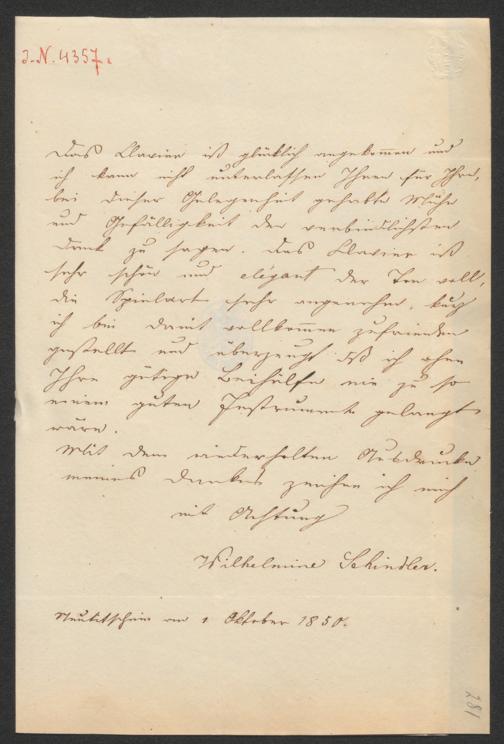 J.N. 4357.
Das Clavier ist glücklich angekommen und
ich kann nicht unterlassen Ihnen für Ihre,
bei dieser Gelegenheit gehabte Mühe
und Gefälligkeit den verbindlichsten
Dank zu sagen. Das Clavier ist
sehr schön und elegant der Ton voll,
die Spielart sehr angenehm, kurz
ich bin damit vollkommen zufrieden
gestellt und überzeugt daß ich ohne
Ihre gütige Beihülfe nie zu so
einem guten Instrumente gelangt
wäre.
Mit dem wiederholten Ausdrucke
meines Dankes zeichne ich mich
mit Achtung
Wilhelmine Schindler.
Neutitschein am 1 Oktober 1850.
281